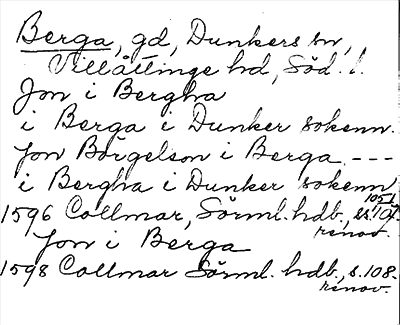 Berga, gd, Dunkers sn,
Villåttinge hd, Söd. l.
Jon i Bergha
i Berga i Dunker sokenn.
Jon Börgelson i Berga ---
i Bergha i Dunker sokenn
1596 Collmar, Sörml. hdb., ss.
renov.
Jon i Berga
1598 Collmar Sörml. hdb., s. 108.
renov.